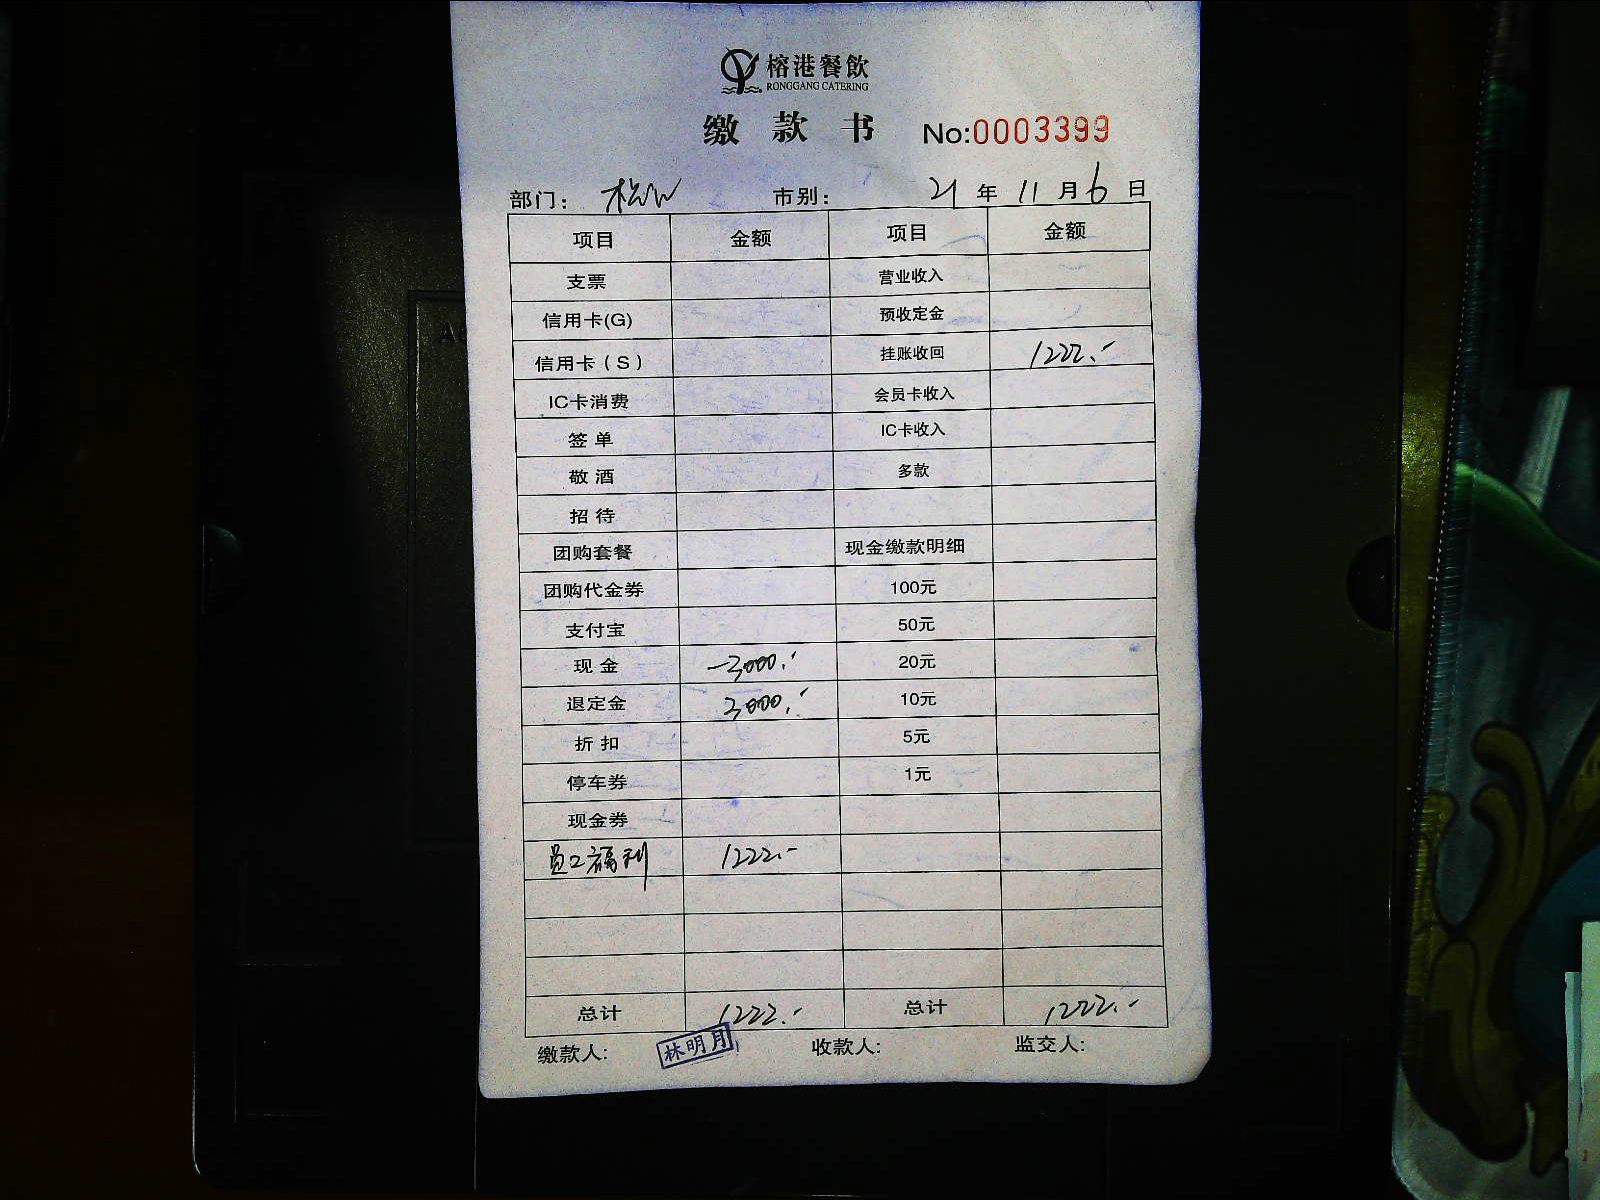 榕港餐飲
RONGGANG CATERING
缴款书 No:0003399
部门: 市别: 21年11月6日
项目 金额 项目 金额
支票 营业收入
信用卡(G) 预收定金
信用卡(S) 挂账收回 1222.-
IC卡消费 会员卡收入
签单 IC卡收入
敬酒 多款
招待
团购套餐 现金缴款明细
团购代金券 100元
支付宝 50元
现金 -3000.- 20元
退定金 3000.- 10元
折扣 5元
停车券 1元
现金券
员工福利 1222.-
总计 1222.- 总计 1222.-
缴款人: 林明月 收款人: 监交人: